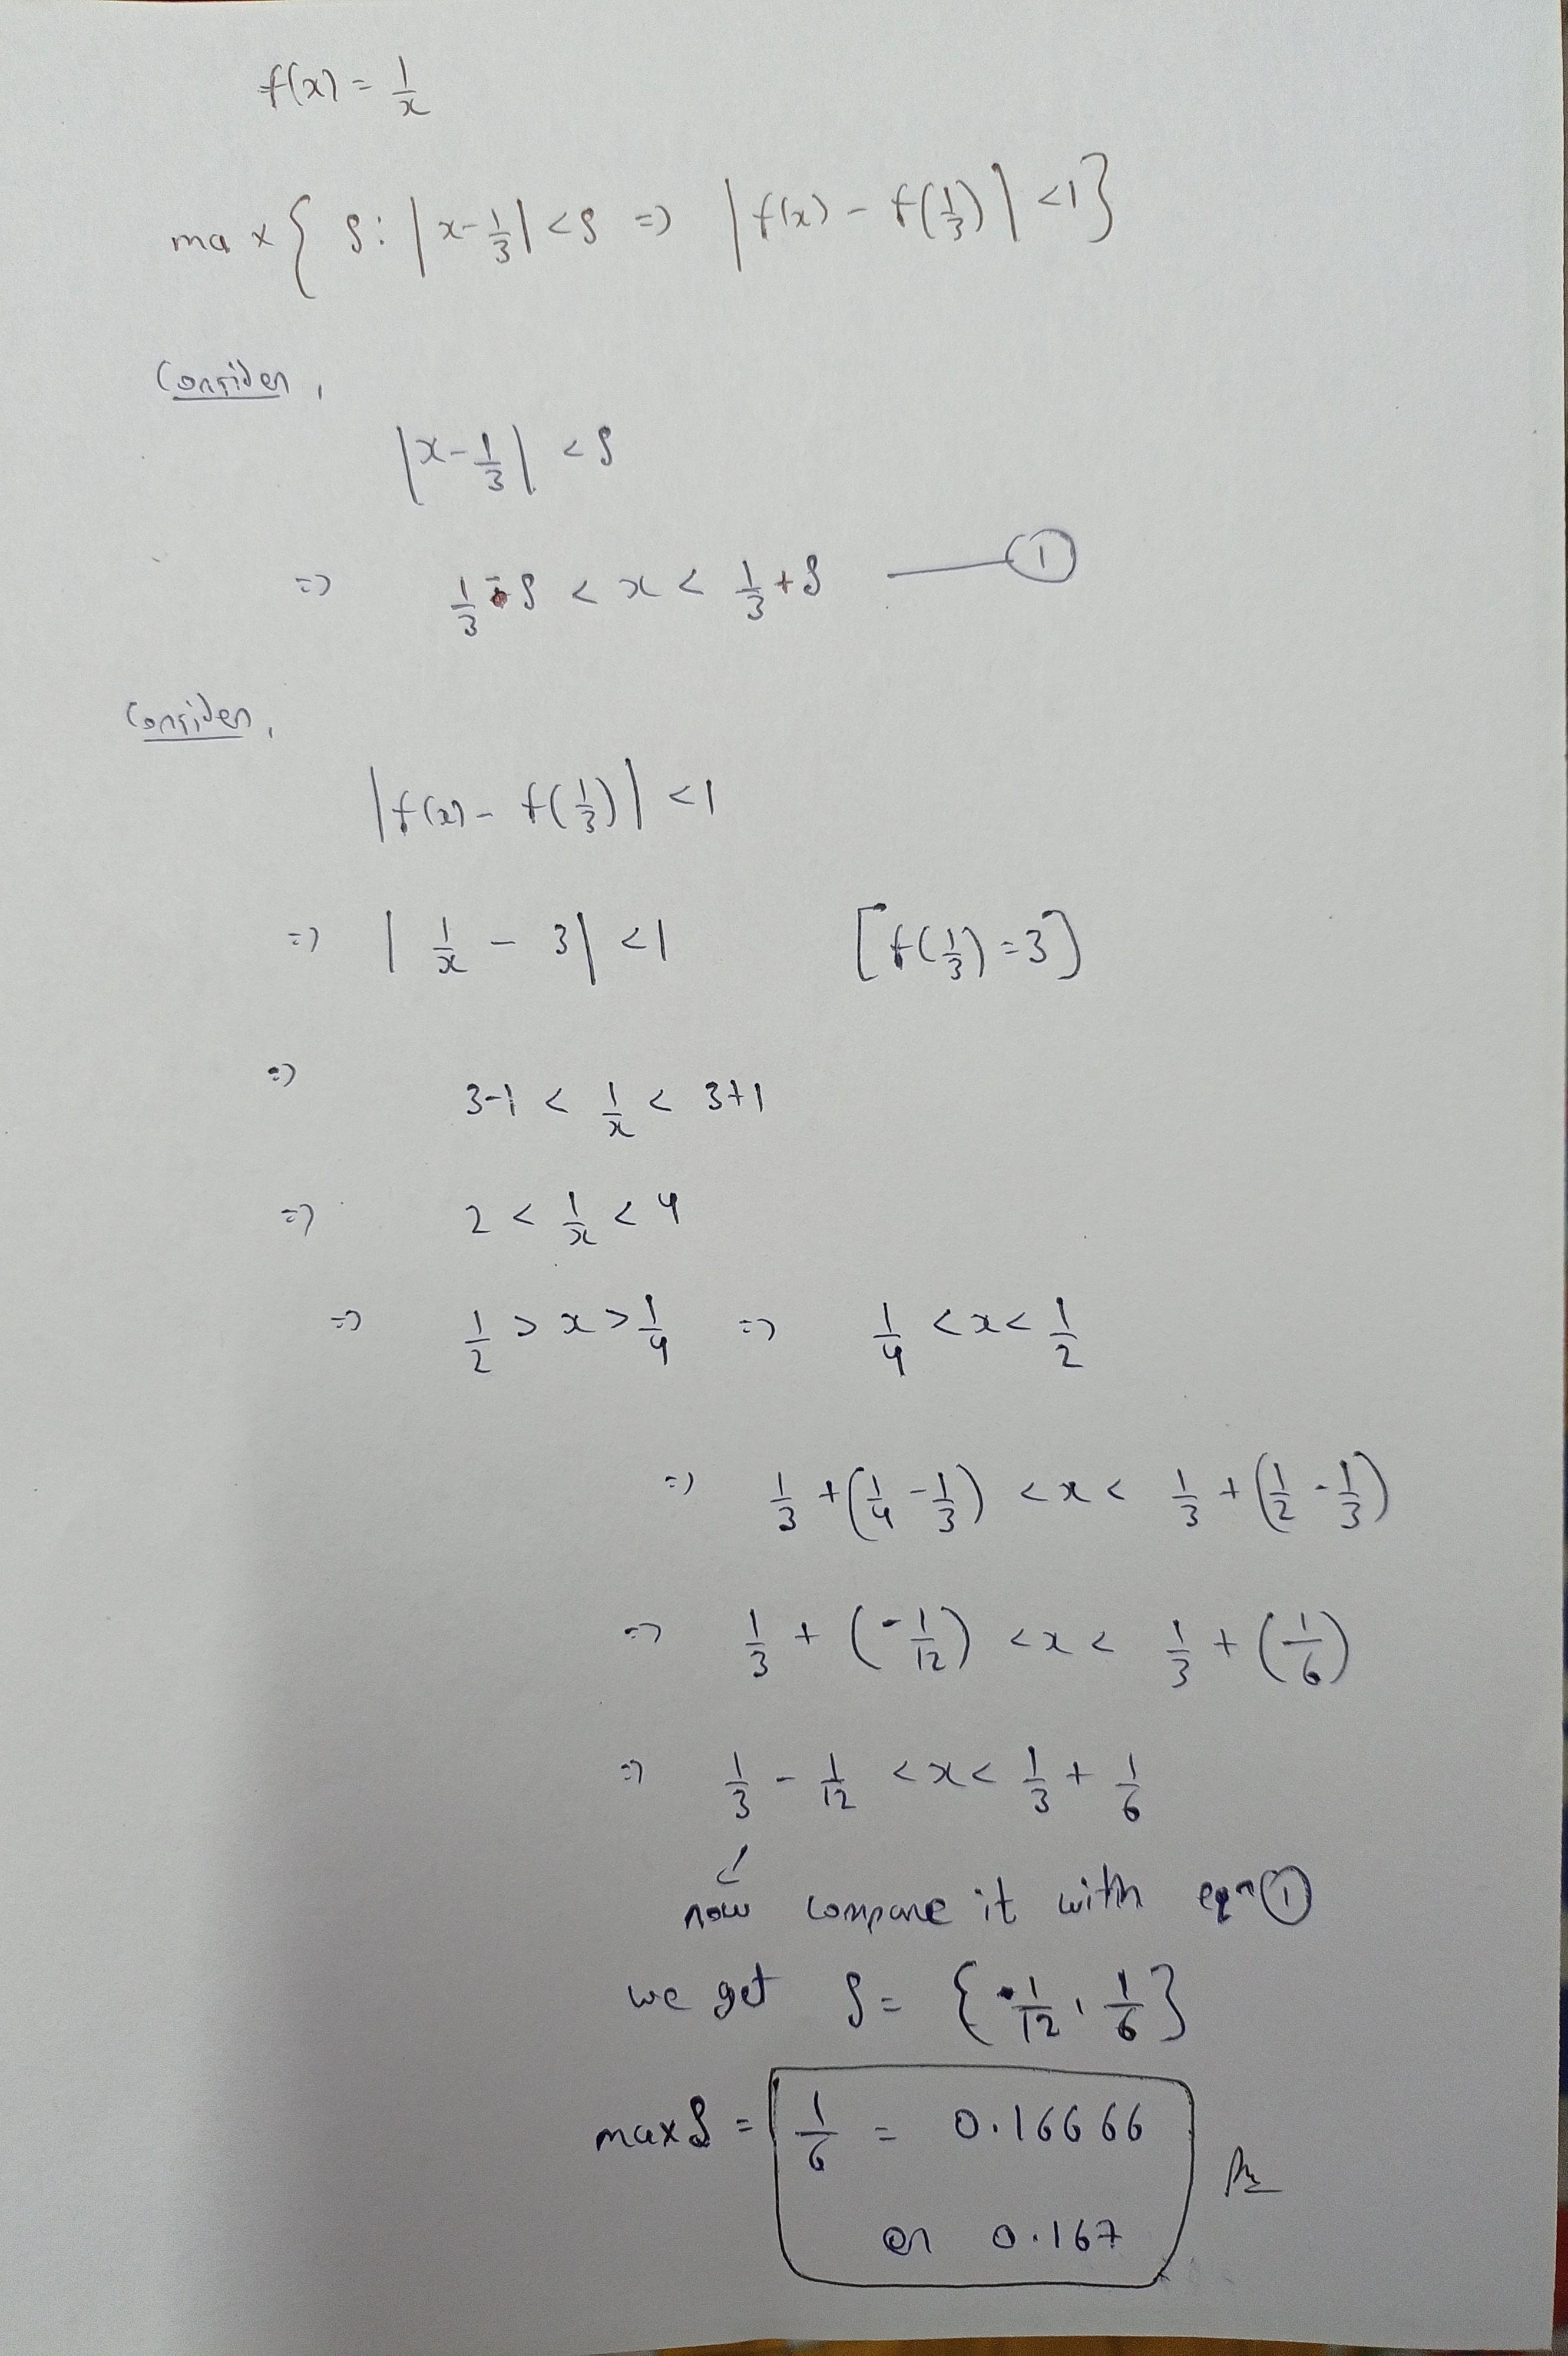 f(x) = 1/x
max { δ : |x - 1/3| < δ => |f(x) - f(1/3)| < 1 }
Consider,
|x - 1/3| < δ
=> 1/3 - δ < x < 1/3 + δ —— ①
Consider,
|f(x) - f(1/3)| < 1
=> |1/x - 3| < 1 [f(1/3) = 3]
=> 3-1 < 1/x < 3+1
=> 2 < 1/x < 4
=> 1/2 > x > 1/4 => 1/4 < x < 1/2
=> 1/3 + (1/4 - 1/3) < x < 1/3 + (1/2 - 1/3)
=> 1/3 + (-1/12) < x < 1/3 + (1/6)
=> 1/3 - 1/12 < x < 1/3 + 1/6
now compare it with eqn ①
we get δ = { 1/12, 1/6 }
max δ = 1/6 = 0.16666
or 0.167